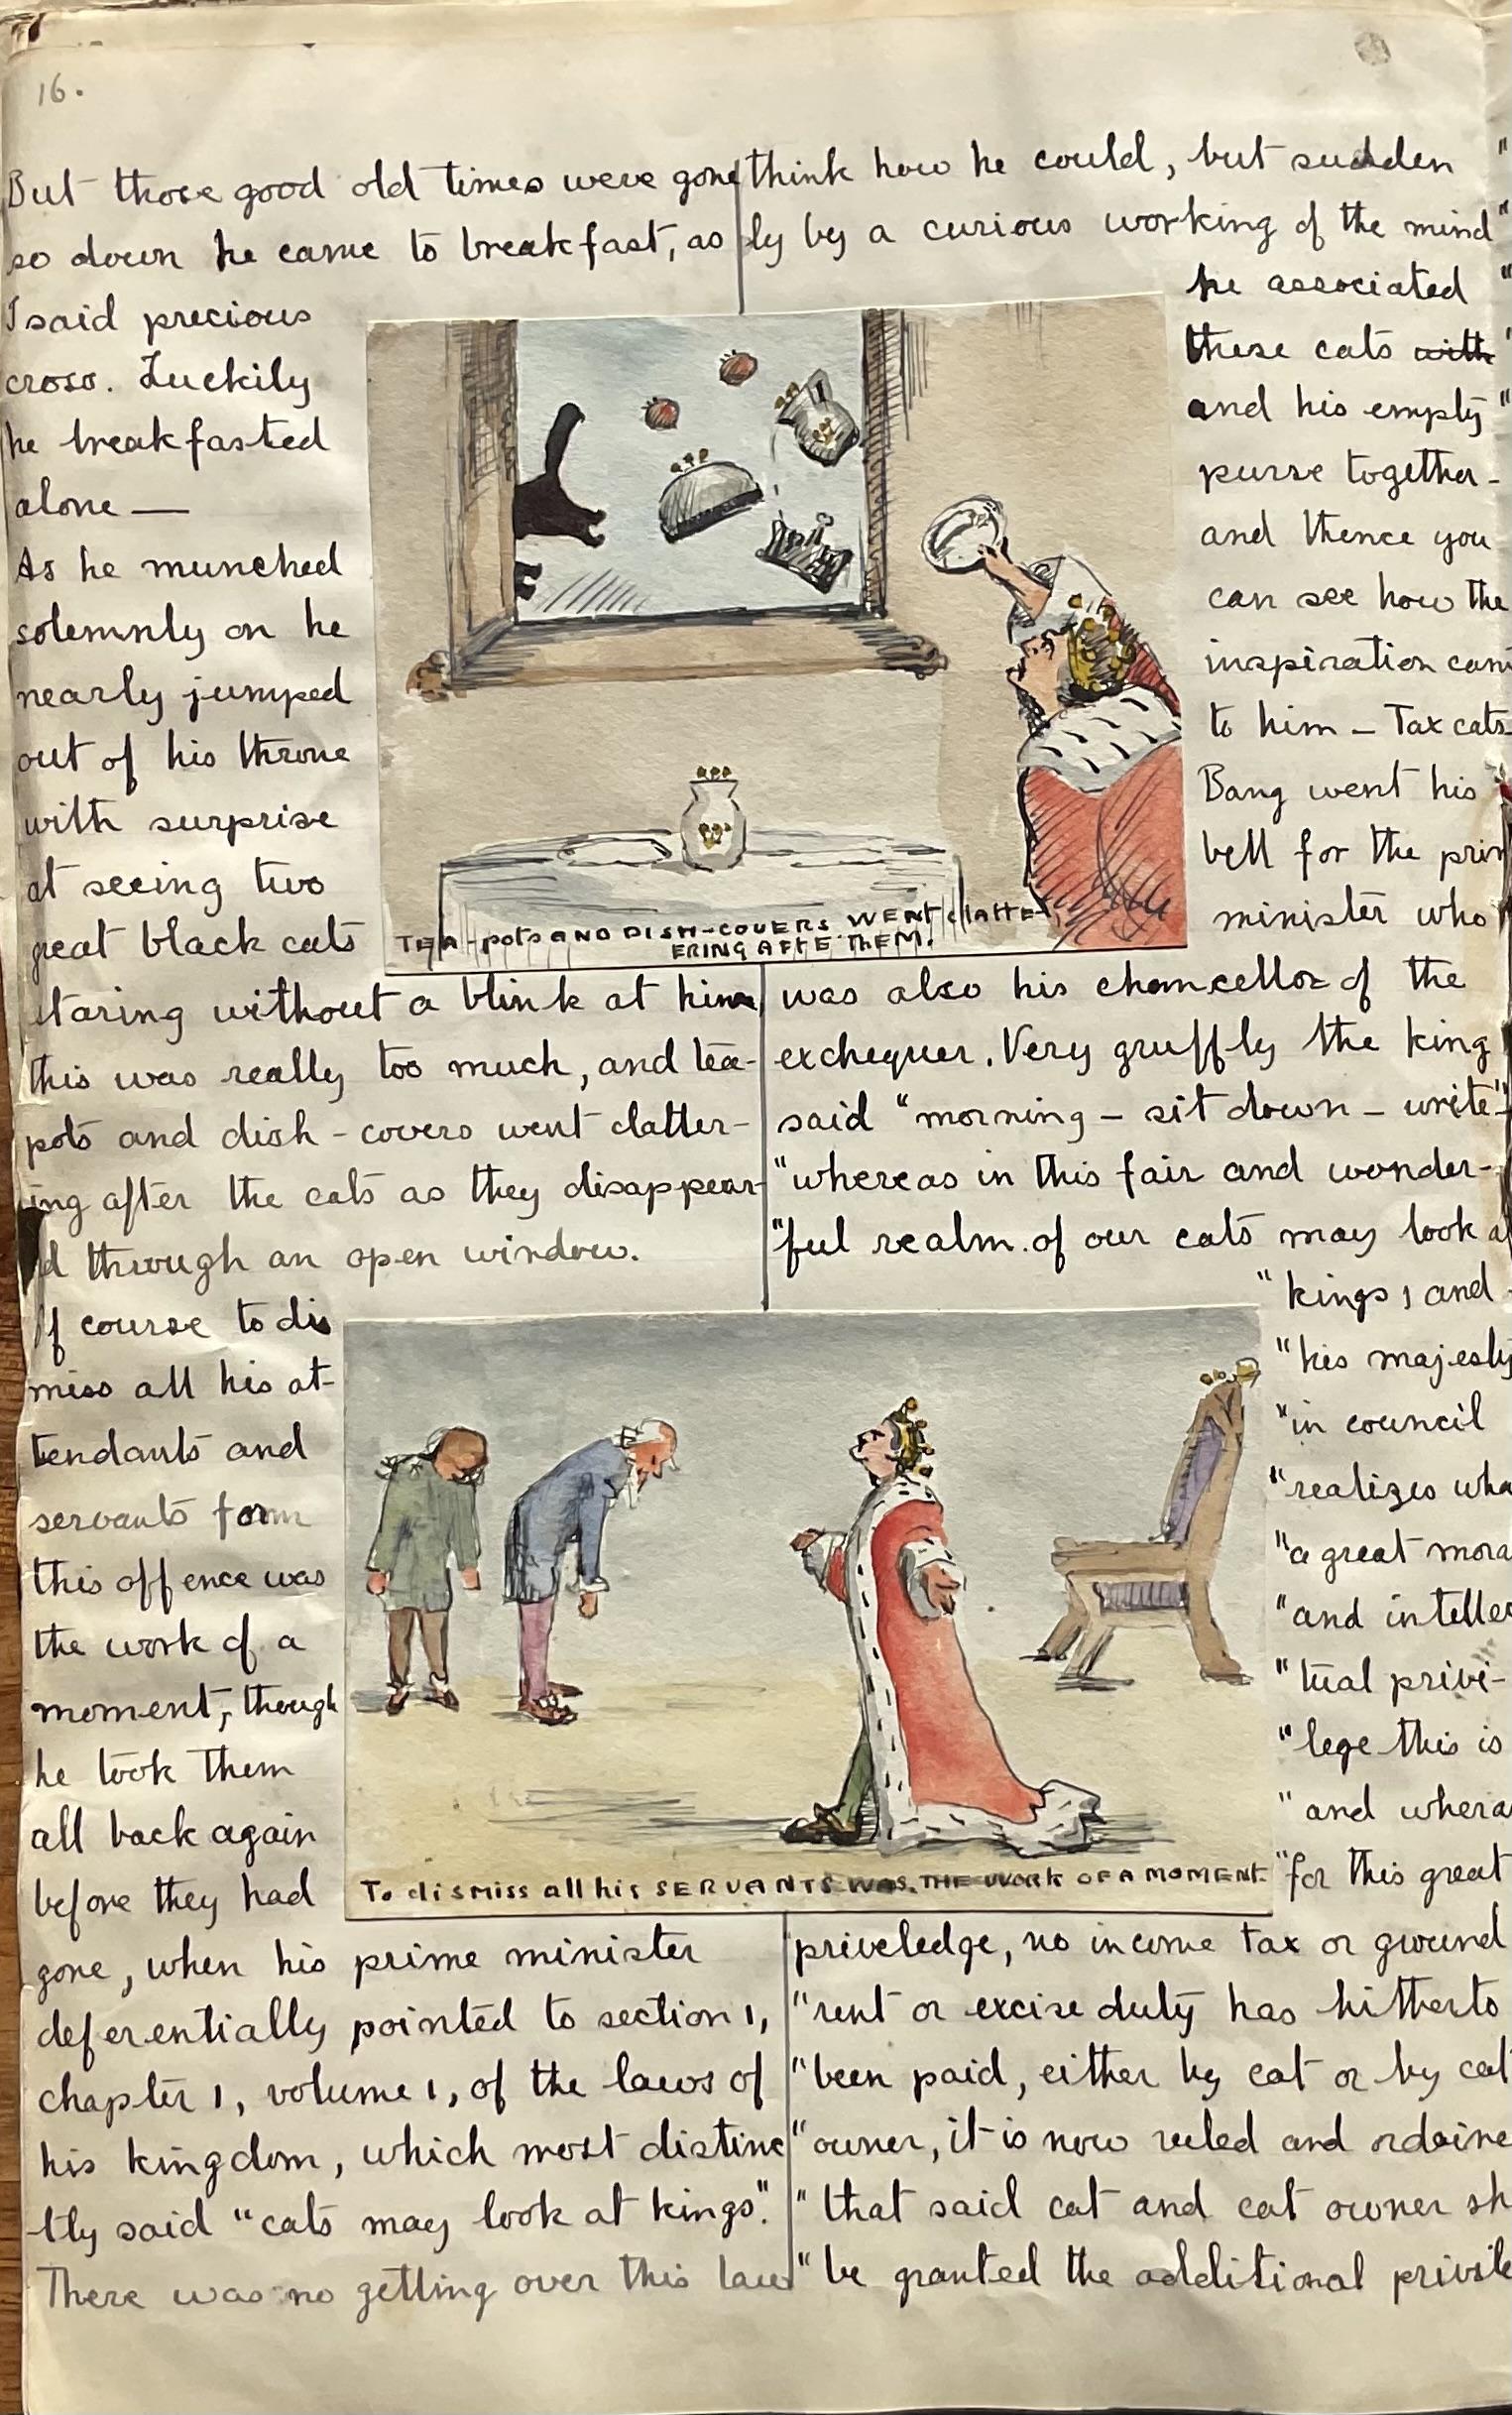 16.
But those good old times were gone
so down he came to breakfast, as
I said precious
cross. Luckily
he breakfasted
alone —
As he munched
solemnly on he
nearly jumped
out of his throne
with surprise
at seeing two
great black cats
staring without a blink at him,
this was really too much, and tea-
pots and dish-covers went clatter-
ing after the cats as they disappear-
ed through an open window.
Of course to dis
miss all his at-
tendants and
servants form
this offence was
the work of a
moment, though
he took them
all back again
before they had
gone, when his prime minister
deferentially pointed to section 1,
chapter 1, volume 1, of the laws of
his kingdom, which most distinc
tly said "cats may look at kings".
There was no getting over this law
TEA-pots AND DISH-COVERS WENT clatte
ERING AFTE THEM.
To dismiss all his SERVANTS WAS THE WORK OF A MOMENT.
think how he could, but sudden
ly by a curious working of the mind
he associated
these cats with
and his empty
purse together-
and thence you
can see how the
inspiration cam
to him — Tax cats
Bang went his
bell for the prim
minister who
was also his chancellor of the
exchequer. Very gruffly the king
said "morning — sit down — write"-
"whereas in this fair and wonder-
"ful realm of our cats may look at
"kings, and
"his majesty
"in council
"realizes wha
"a great mora
"and intellec
"tual privi-
"lege this is
"and wherea
"for this great
priveledge, no income tax or ground
"rent or excise duty has hitherto
"been paid, either by cat or by cat
"owner, it is now ruled and ordaine
"that said cat and cat owner sh
"be granted the additional privile